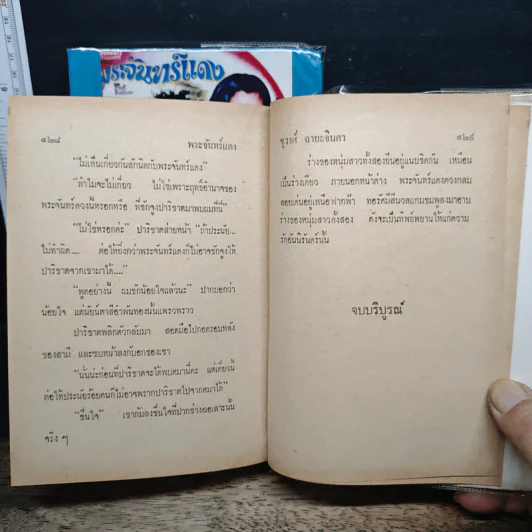 พระจันทร์แดง
๔๒๘ พระจันทร์แดง
"ไม่เห็นเกี่ยวกันสักนิดกับพระจันทร์แดง"
"ทำไมจะไม่เกี่ยว ไม่ใช่เพราะฤทธิ์อำนาจของ
พระจันทร์ดวงนี้หรอกหรือ ที่ชักจูงปาริชาตมาพบผมที่นี่"
"ไม่ใช่หรอกค่ะ" ปาริชาตส่ายหน้า "ถ้าประนัย...
ไม่ทำผิด.... ต่อให้ยิ่งกว่าพระจันทร์แดงก็ไม่อาจชักจูงให้
ปาริชาตจากเขามาได้...."
"พูดอย่างนี้ ผมชักน้อยใจแล้วนะ" ปากบอกว่า
น้อยใจ แต่นัยน์ตาสีอำพันทองนั้นแพรวพราว
ปาริชาตพลิกตัวกลับมา สอดมือไปกอดรอบหลัง
ของสามี และซบหน้าลงกับอกของเขา
"นั่นน่ะก่อนที่ปาริชาตจะได้พบคมานี่คะ แต่เดี๋ยวนี้
ต่อให้ประนัยร้อยคนก็ไม่อาจพรากปาริชาตไปจากคมาได้"
"ชื่นใจ" เขาก้มลงชื่นใจที่ปากช่างฉอเลาะนั้น
จริง ๆ
จุรงศ์ ฉายะจินดา ๔๒๙
ร่างของหนุ่มสาวทั้งสองยืนอยู่แนบชิดกัน เหมือน
เป็นร่างเดียว ภายนอกหน้าต่าง พระจันทร์แดงดวงกลม
ลอยเด่นอยู่เหนือฟากฟ้า ทอรัศมีสีนวลแกมชมพูลงมาอาบ
ร่างของหนุ่มสาวทั้งสอง ดังจะเป็นทิพย์พยานให้แก่ความ
รักอันนิรันดร์นั้น
จบบริบูรณ์